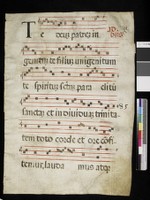 Te deum patrem in
genitum te filium unigenitum
te spiritum sctm para clitū
sanctam et individuam trinita
tem toto corde et ore confi
temur lauda mus atqз